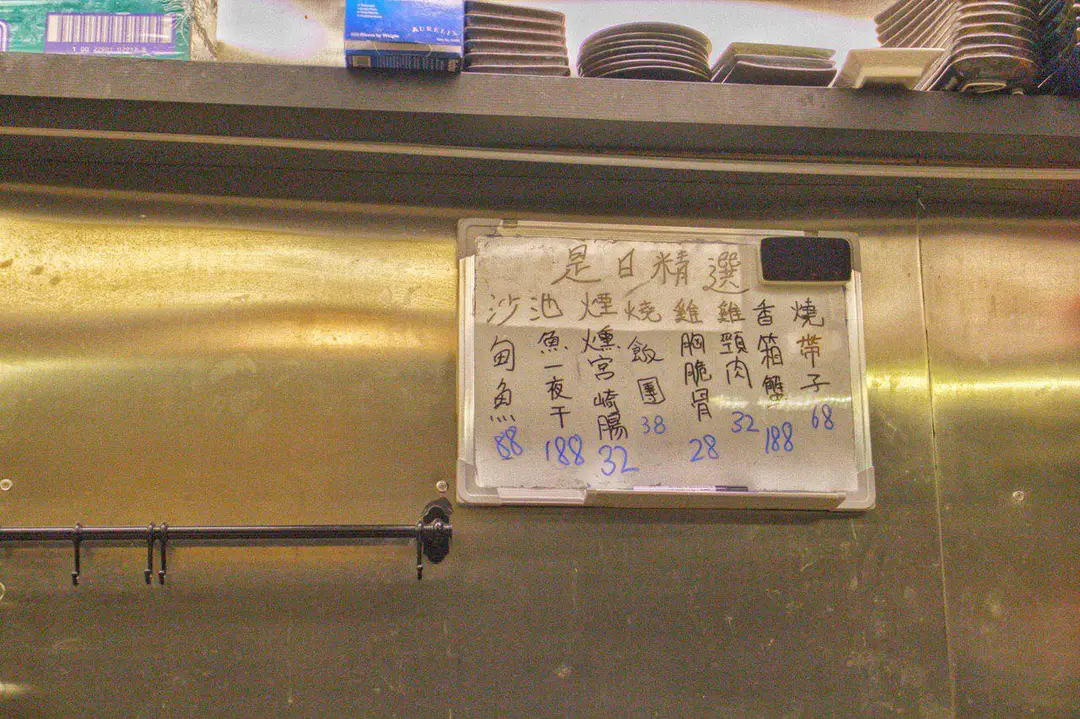 是日精選
燒帶子 68
香箱蟹 188
雞頸肉 32
雞胸脆骨 28
燒飯團 38
煙燻宮崎腸 32
池魚一夜干 188
沙甸魚 88